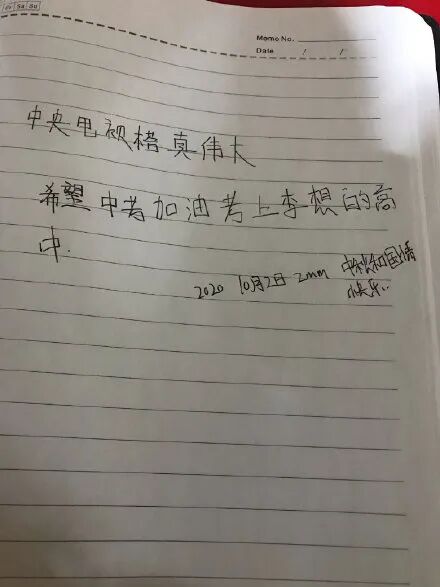 Fr Sa Su
Memo No.
Date / /
中央电视榙真伟大
希望中考加油考上李想的高
中.
2020 10月2日 2mm 中秋和国情
快乐..